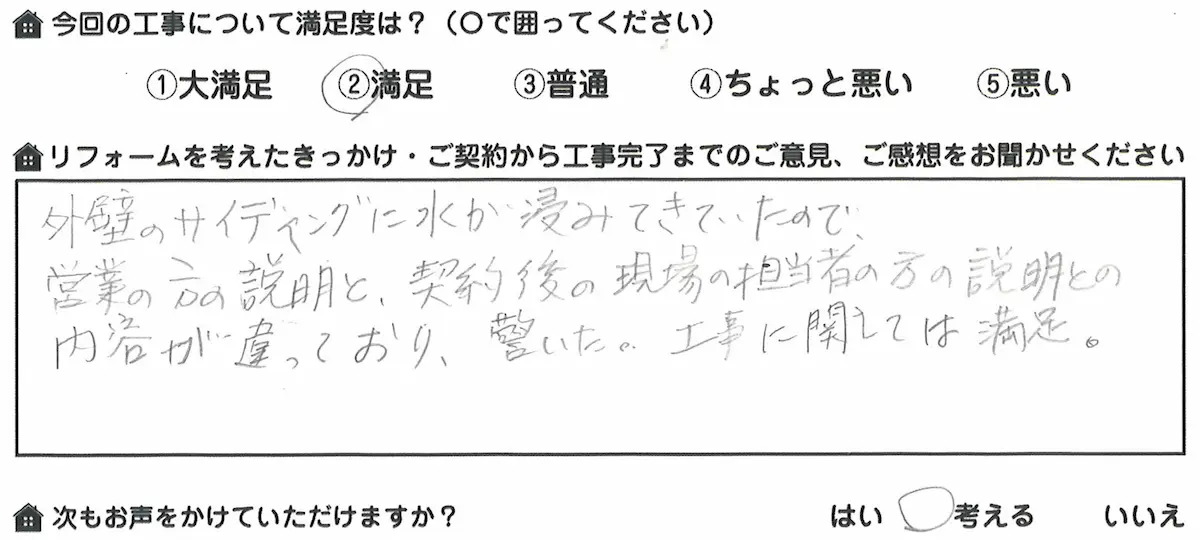 今回の工事について満足度は？（〇で囲ってください）
①大満足 ②満足 ③普通 ④ちょっと悪い ⑤悪い
リフォームを考えたきっかけ・ご契約から工事完了までのご意見、ご感想をお聞かせください
外壁のサイディングに水が浸みてきていたので、
営業の方の説明と、契約後の現場の担当者の方の説明との
内容が違っており、驚いた。工事に関しては満足。
次もお声をかけていただけますか？ はい 考える いいえ